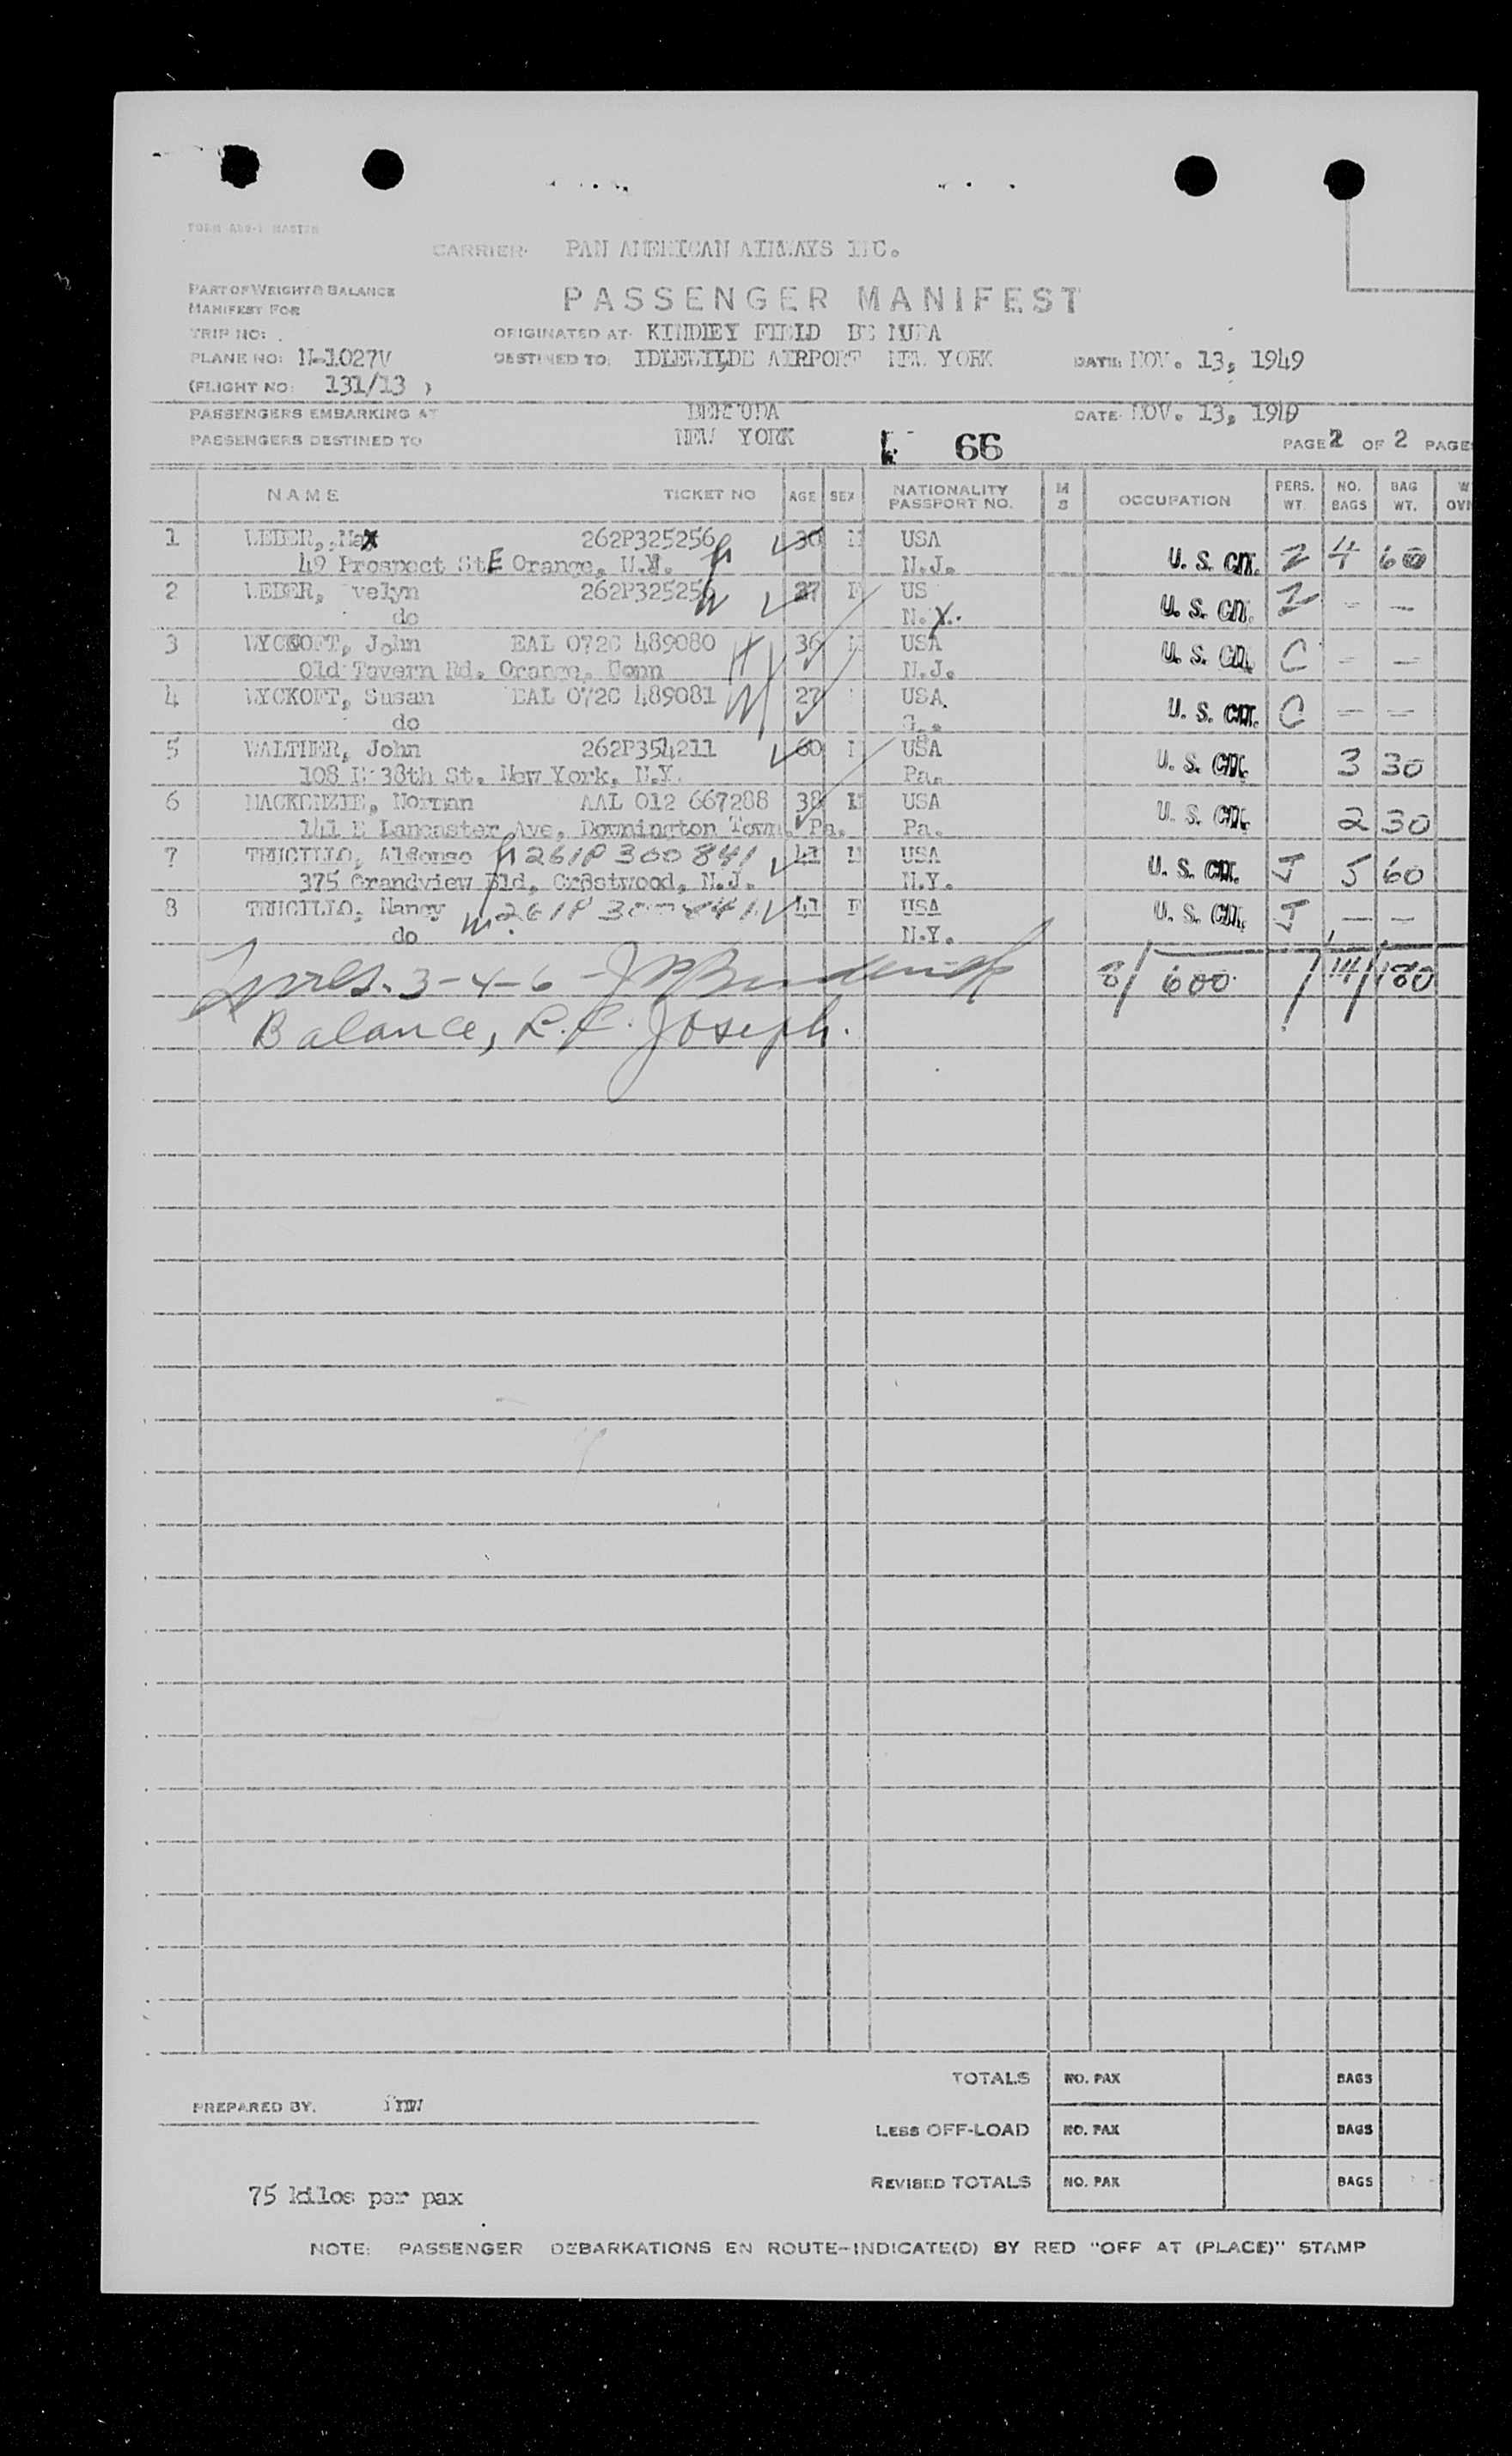 FORM ABS-1 MASTER
CARRIER: PAN AMERICAN AIRWAYS INC.
PART OF WEIGHT & BALANCE
MANIFEST FOR
PASSENGER MANIFEST
TRIP NO:
ORIGINATED AT: KINDLEY FIELD BERMUDA
PLANE NO: N-1027V
DESTINED TO: IDLEWILDE AIRPORT NEW YORK
DATE: NOV. 13, 1949
(FLIGHT NO: 131/13 )
PASSENGERS EMBARKING AT BERMUDA
DATE: NOV. 13, 1949
PASSENGERS DESTINED TO NEW YORK
66
PAGE 2 OF 2 PAGES
NAME TICKET NO AGE SEX NATIONALITY PASSPORT NO. M S OCCUPATION PERS. WT. NO. BAGS BAG WT. W
1 LEDER, Max 262P325256 30 M USA
49 Prospect St E Orange, N.J. N.J. U. S. CIT. 2 4 60
2 LEDER, velyn 262P325256 27 F US
do N.Y. U. S. CIT. 2 - -
3 WYCKOFT, John EAL 072C 489080 36 M USA
Old Tavern Rd. Orange, Conn N.J. U. S. CIT. C - -
4 WYCKOFT, Susan EAL 072C 489081 27 USA
do U. S. CIT. C - -
5 WALTHER, John 262P354211 60 M USA
108 E 38th St. New York, N.Y. Pa. U. S. CIT. 3 30
6 MACKENZIE, Norman AAL 012 667288 38 M USA
141 E Lancaster Ave, Downington Town, Pa. Pa. U. S. CIT. 2 30
7 TRUCILLO, Alfonso 261P 300841 41 M USA
375 Grandview Bld, Crestwood, N.J. N.Y. U. S. CIT. J 5 60
8 TRUCILLO, Nancy 261P 300841 41 F USA
do N.Y. U. S. CIT. J - -
3-4-6 8/ 600 14/180
Balance, R. C. Joseph.
TOTALS NO. PAX BAGS
PREPARED BY.
LESS OFF-LOAD NO. PAX BAGS
REVISED TOTALS NO. PAX BAGS
75 kilos per pax
NOTE: PASSENGER DEBARKATIONS EN ROUTE-INDICATE(D) BY RED "OFF AT (PLACE)" STAMP